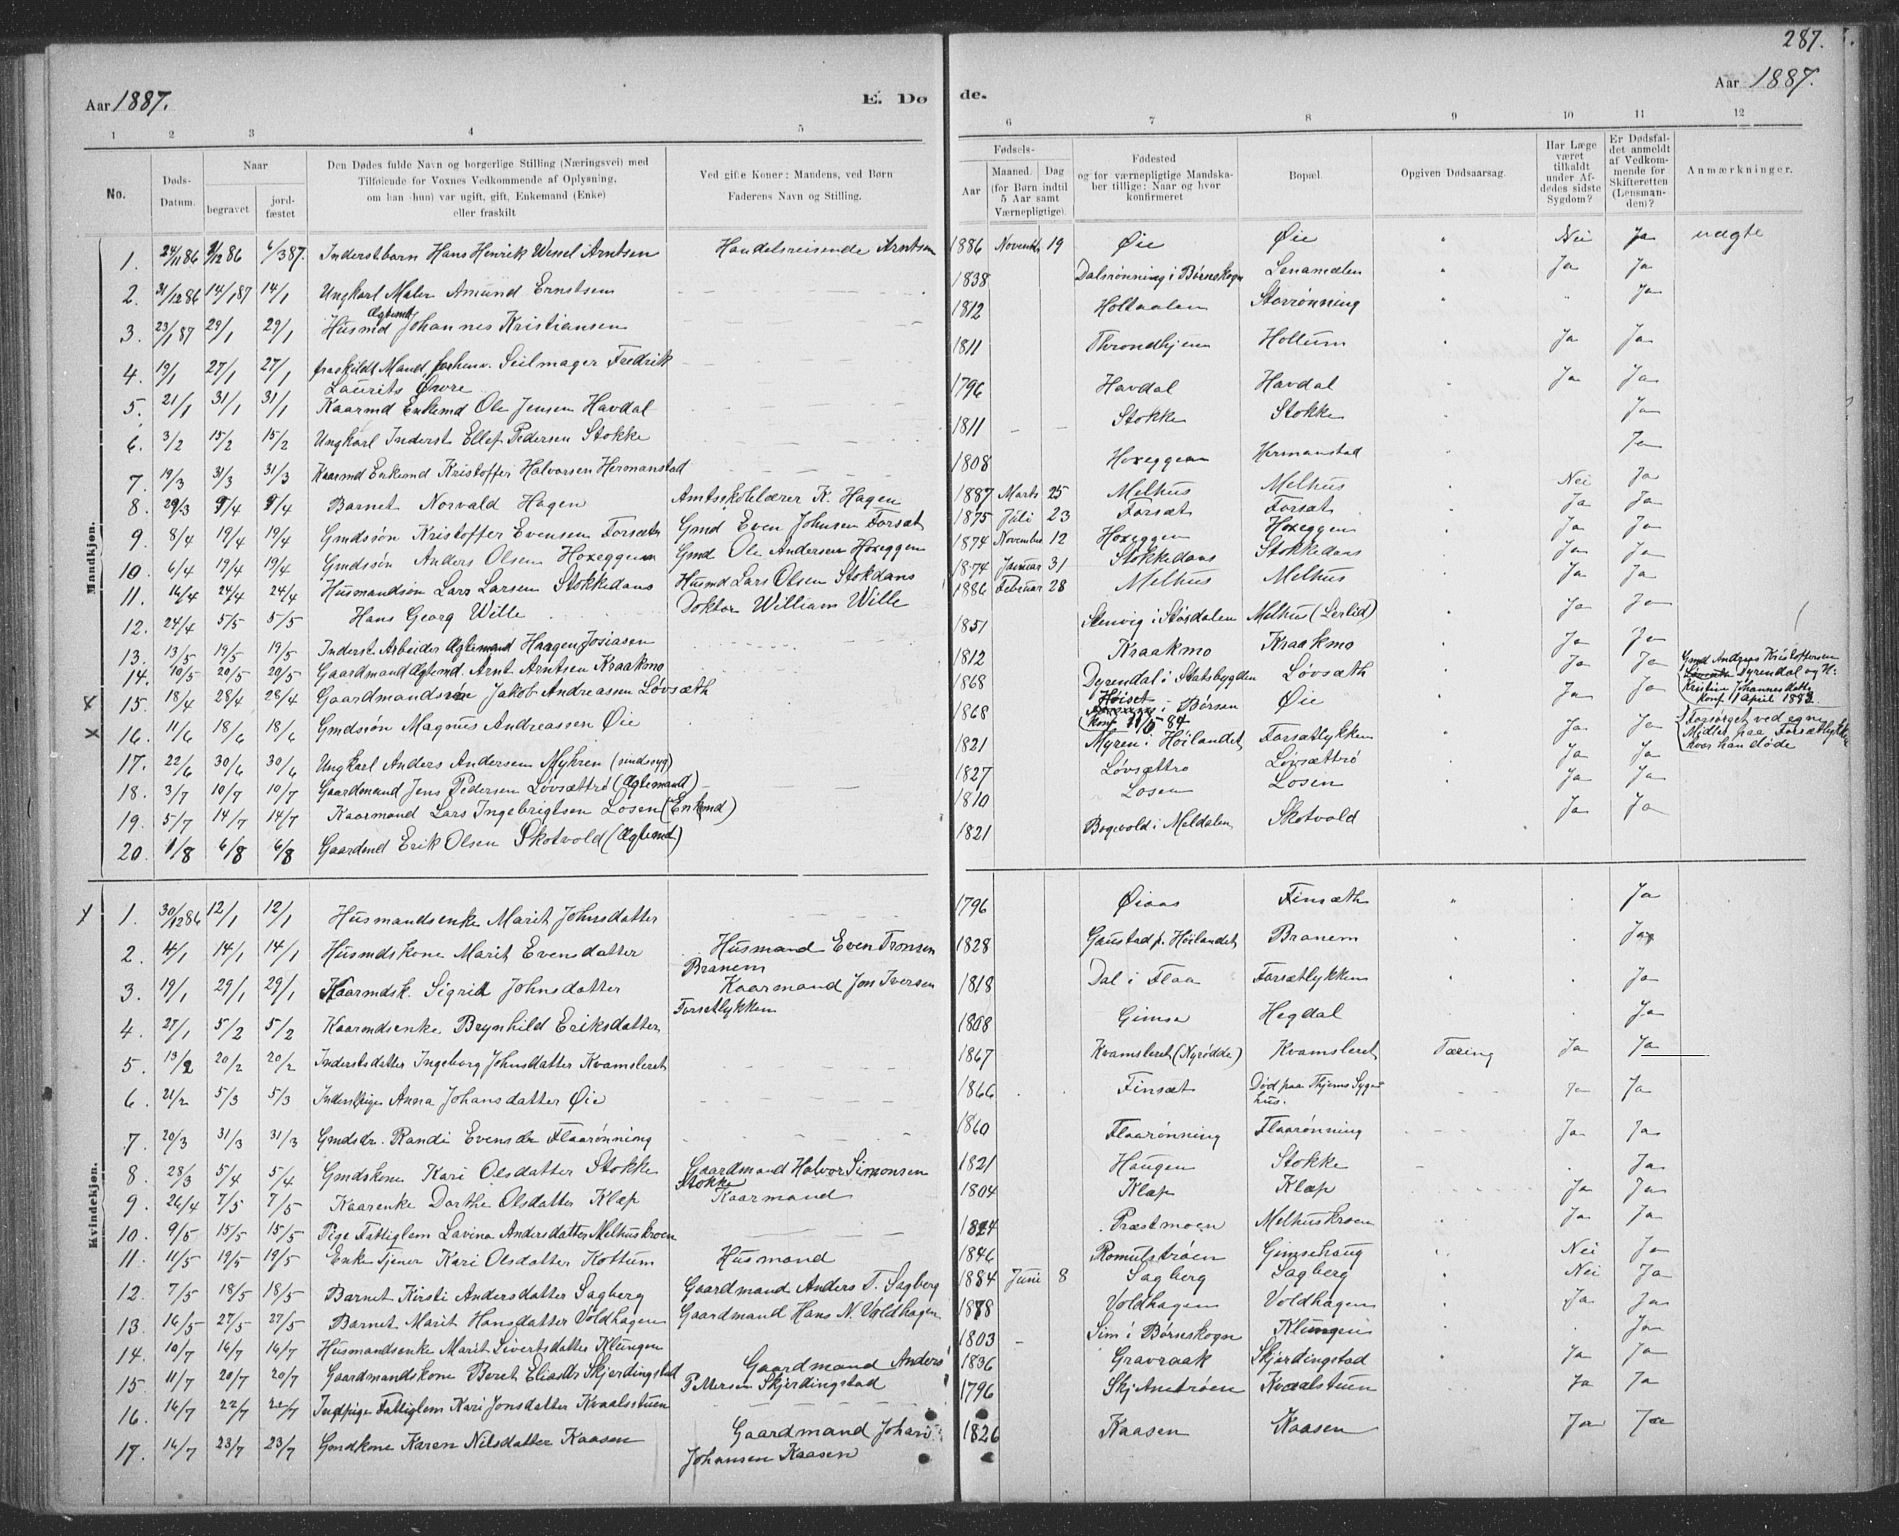 287.
Aar 1887. E. Dø de. Aar 1887.
1 2 3 4 5 6 7 8 9 10 11 12
No. Døds-Datum. Naar begravet jordfæstet Den Dødes fulde Navn og borgerlige Stilling (Næringsvei) med Tilføiende for Voxnes Vedkommende af Oplysning, om han (hun) var ugift, gift, Enkemand (Enke) eller fraskilt Ved gifte Koner: Mandens, ved Børn Faderens Navn og Stilling. Fødsels- Aar Maaned. Dag (for Børn indtil 5 Aar samt Værnepligtige). Fødested og for værnepligtige Mandskaber tillige: Naar og hvor konfirmeret Bopæl. Opgiven Dødsaarsag. Har Læge været tilkaldt under Afdødes sidste Sygdom? Er Dødsfaldet anmeldt af Vedkommende for Skifteretten (Lensmanden)? Anmærkninger.
Mandkjøn.
1. 24/11 86 9/12 86 6/3 87. Inderstbarn Hans Henrik Wessel Arntsen Handelsreisende Arntsen 1886 Novembr 19 Øie Øie Nei Ja uægte
2. 31/12 86 14/1 87 14/1 Ungkarl Maler Amund Ernstsen 1838 Dalsrønning i Børseskogn Lenamælen Ja Ja
3. 23/1 87 29/1 29/1 Husmd Ægtemd Johannes Kristiansen 1812 Holtaalen Storrønning Ja
4. 19/1 27/1 27/1 fraskildt Mand, forhenv. Seilmager Fredrik Laurits Øwre 1811 Throndhjem Hollum Ja Ja
5. 21/1 31/1 31/1 Kaarmd Enkemd Ole Jensen Havdal 1796 Havdal Havdal Ja Ja
6. 3/2 15/2 15/2 Ungkarl Inderst Ellef Pedersen Stokke 1811 Stokke Stokke Ja
7. 19/3 31/3 31/3 Kaarmd Enkemd Kristoffer Halvorsen Hermanstad 1808 Hoxeggen Hermanstad Ja
8. 29/3 9/4 9/4 Barnet Norvald Hagen Amtsskolelærer K. Hagen 1887 Marts 25 Melhus Melhus Nei Ja
9. 8/4 19/4 19/4 Gmdssøn Kristoffer Evensen Forsæt Gmd Even Johnsen Forsæt 1875 Juli 23 Forsæt Forsæt Ja Ja
10. 6/4 19/4 19/4 Gmdssøn Anders Olsen Hoxeggen Gmd Ole Andersen Hoxeggen 1874 November 12 Hoxeggen Hoxeggen Ja Ja
11. 16/4 24/4 24/4 Husmandsøn Lars Larsen Stokkedans Husmd Lars Olsen Stokdans 1874 Januar 31 Stokkedans Stokkedans Ja Ja
12. 24/4 5/5 5/5 Hans Georg Wille Doktor William Wille 1886 Februar 28 Melhus Melhus Ja Ja
13. 13/5 19/5 19/5 Inderst Arbeider Ægtemand Haagen Josiasen 1851 Stenvig i Størdalen Melhus (Lerlid) Ja Ja
14. 10/5 20/5 20/5 Gaardmand Ægtemd. Arnt Arntsen Kraakmo 1812 Kraakmo Kraakmo Ja Ja
15. 18/4 28/4 28/4 Gaardmandssøn Jakob Andreassen Løvsæth 1868 Dyrendal i Statsbygden Løvsæth Ja Ja Gmd Andreas Kristoffersen Dyrendal og H. Kristine Johannesdatter Konf 1 April 1883
16. 11/6 18/6 18/6 Gmdssøn Magnus Andreassen Øie 1868 Høiset i Børsen Konf 11/5 84 Øie Ja Ja
17. 22/6 30/6 30/6 Ungkarl Anders Andersen Myhren (sindssyg) 1821 Myren i Høilandet Forsætlykken Ja Ja Forsørget ved egne Midler paa Forsætlykken hvor han døde
18. 3/7 10/7 10/7 Gaardmand Jens Pedersen Løvsættrø (Ægtemand) 1827 Løvsættrø Løvsættrø Ja Ja
19. 5/7 14/7 14/7 Kaarmand Lars Ingebrigtsen Losen (Enkemd) 1810 Losen Losen Ja Ja
20. 1/8 6/8 6/8 Gaardmd Erik Olsen Skotvold (Ægtemd) 1821 Bogevold i Meldalen Skotvold Ja Ja
Kvindekjøn.
1. 30/12 86 12/1 12/1 Husmandsenke Marit Johnsdatter 1796 Øiaas Finsæth Ja
2. 4/1 14/1 14/1 Husmdskone Marit Evensdatter Husmand Even Tronsen Branem 1828 Gaustad p. Høilandet Branem Ja
3. 19/1 29/1 29/1 Kaarmdsk. Sigrid Johnsdatter Kaarmand Jon Iversen Forsetlykken 1818 Dal i Flaa Forsætlykken Ja
4. 27/1 5/2 5/2 Kaarmdsenke Brynhild Eriksdatter 1808 Gimse Hegdal Ja
5. 13/2 20/2 20/2 Inderstsdatter Ingeborg Johnsdatter Kvamsleret 1867 Kvamsleret (Nyrødde) Kvamsleret Tæring Ja Ja
6. 21/2 5/3 5/3 Inderstpige Anna Johansdatter Øie 1866 Finsæt Død paa Thjems Sygehus. Ja Ja
7. 20/3 31/3 31/3 Gmdsdr. Randi Evensdr Flaarønning 1860 Flaarønning Flaarønning Ja Ja
8. 28/3 5/4 5/4 Gmdskone Kari Olsdatter Stokke Gaardmand Halvor Simonsen Stokke 1821 Haugen Stokke Ja
9. 26/4 7/5 7/5 Kaarenke Dorthe Olsdatter Klæp Kaarmand 1804 Klæp Klæp Ja Ja
10. 9/5 15/5 15/5 Pige Fattiglem Lavina Andersdatter Melhuskroen 1824 Præstmoen Melhuskroen Ja Ja
11. 11/5 19/5 19/5 Enke Tjener Kari Olsdatter Kottum Husmand 1846 Romulstrøen Gimsehaug Nei Ja
12. 7/5 18/5 18/5 Barnet Kirsti Andersdatter Sagberg Gaardmand Anders T. Sagberg 1884 Juni 8 Sagberg Sagberg Nei Ja
13. 16/5 27/5 27/5 Barnet Marit Hansdatter Voldhagen Gaardmand Hans N. Voldhagen 1878 Voldhagen Voldhagen Ja Ja
14. 10/7 16/7 16/7 Husmandsenke Marit Sivertsdatter Klungen 1803 Sim i Børseskogn Klungen Ja
15. 11/7 20/7 20/7 Gaardmandskone Beret Eliasdr Skjerdingstad Gaardmand Anders Pettersen Skjerdingstad 1836 Gravraak Skjerdingstad Ja Ja
16. 16/7 22/7 22/7 Indpige Fattiglem Kari Jonsdatter Kvaalsstuen 1796 Kvaalstuen Ja Ja
17. 14/7 23/7 23/7 Gmdkone Karen Nilsdatter Kaasen Gaardmand Johan Johansen Kaasen 1826 Kaasen Kaasen Ja Ja